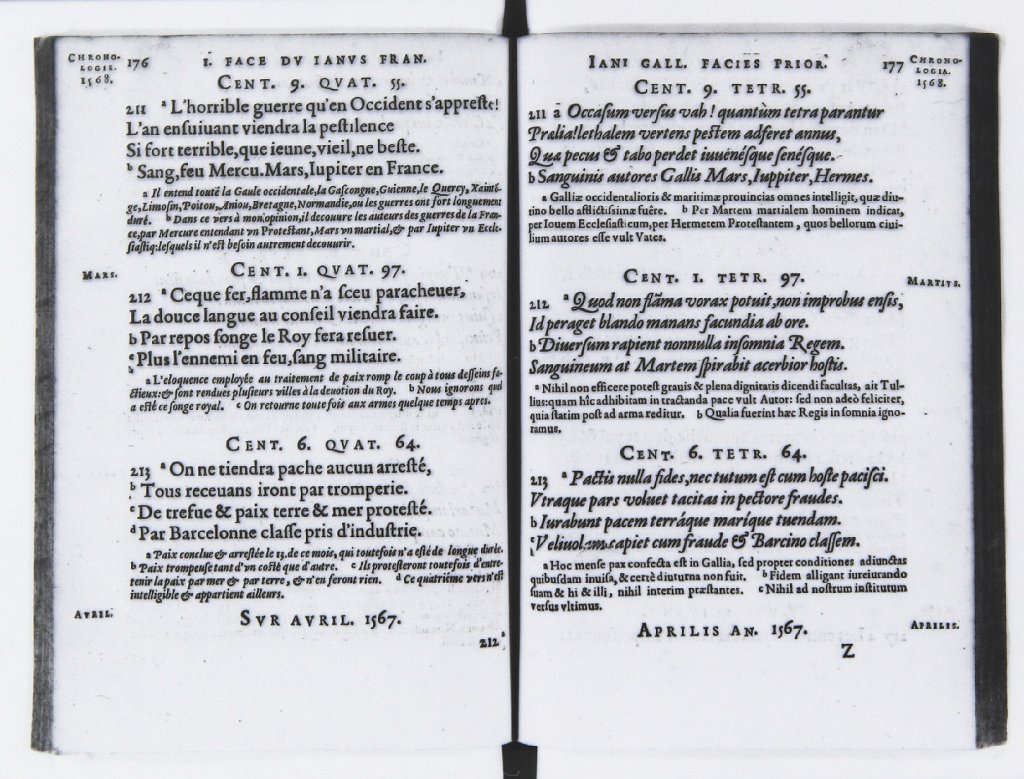 CHRONO-
LOGIE.
1568.
176 I. FACE DV IANVS FRAN.
CENT. 9. QVAT. 55.
211 a L'horrible guerre qu'en Occident s'appreste!
L'an ensuiuant viendra la pestilence
Si fort terrible, que ieune, vieil, ne beste.
b Sang, feu Mercu. Mars, Iupiter en France.
a Il entend toute la Gaule occidentale, la Gascongne, Guienne, le Quercy, Xainto-
ge, Limosin, Poitou, Aniou, Bretagne, Normandie, ou les guerres ont fort longuement
duré. b Dans ce vers à mon opinion, il decouure les auteurs des guerres de la Fran-
ce, par Mercure entendant vn Protestant, Mars vn martial, & par Iupiter vn Eccle-
siastiq: lesquels il n'est besoin autrement decouurir.
MARS.
CENT. I. QVAT. 97.
212 a Ceque fer, flamme n'a sceu paracheuer,
La douce langue au conseil viendra faire.
b Par repos songe le Roy fera resuer.
c Plus l'ennemi en feu, sang militaire.
a L'eloquence employée au traitement de paix romp le coup à tous desseins fa-
ctieux: & sont rendues plusieurs villes à la deuotion du Roy. b Nous ignorons quel
a esté ce songe royal. c On retourne toutefois aux armes quelque temps apres.
CENT. 6. QVAT. 64.
213 a On ne tiendra pache aucun arresté,
b Tous receuans iront par tromperie.
c De trefue & paix terre & mer protesté.
d Par Barcelonne classe pris d'industrie.
a Paix conclue & arrestée le 13. de ce mois, qui toutefois n'a esté de longue durée.
b Paix trompeuse tant d'vn costé que d'autre. c Ils protesteront toutefois d'entre-
tenir la paix par mer & par terre, & n'en feront rien. d Ce quatriéme vers n'est
intelligible & appartient ailleurs.
AVRIL.
SVR AVRIL. 1567.
212
IANI GALL. FACIES PRIOR. 177
CHRONO-
LOGIA.
1568.
CENT. 9. TETR. 55.
211 a Occasum versus vah! quantùm tetra parantur
Prælia! lethalem vertens pestem adferet annus,
Qua pecus & tabo perdet iuuenésque senésque.
b Sanguinis autores Gallis Mars, Iuppiter, Hermes.
a Galliæ occidentalioris & maritimæ prouincias omnes intelligit, quæ diu-
tino bello afflictissimæ fuêre. b Per Martem martialem hominem indicat,
per Iouem Ecclesiasticum, per Hermetem Protestantem, quos bellorum ciui-
lium autores esse vult Vates.
CENT. I. TETR. 97.
MARTIVS.
212 a Quod non flāma vorax potuit, non improbus ensis,
Id peraget blando manans facundia ab ore.
b Diuersum rapient nonnulla insomnia Regem.
Sanguineum at Martem spirabit acerbior hostis.
a Nihil non efficere potest grauis & plena dignitatis dicendi facultas, ait Tul-
lius: quam hîc adhibitam in tractanda pace vult Autor: sed non adeò feliciter,
quia statim post ad arma reditur. b Qualia fuerint hæc Regis insomnia igno-
ramus.
CENT. 6. TETR. 64.
213 a Pactis nulla fides, nec tutum est cum hoste pacisci.
Vtraque pars voluet tacitas in pectore fraudes.
b Iurabunt pacem terráque maríque tuendam.
c Veliuolam capiet cum fraude & Barcino classem.
a Hoc mense pax confecta est in Gallia, sed propter conditiones adiunctas
quibusdam inuisa, & certè diuturna non fuit. b Fidem alligant iureiurando
suam & hi & illi, nihil interim præstantes. c Nihil ad nostrum institutum
versus vltimus.
APRILIS AN. 1567.
APRILIS.
Z